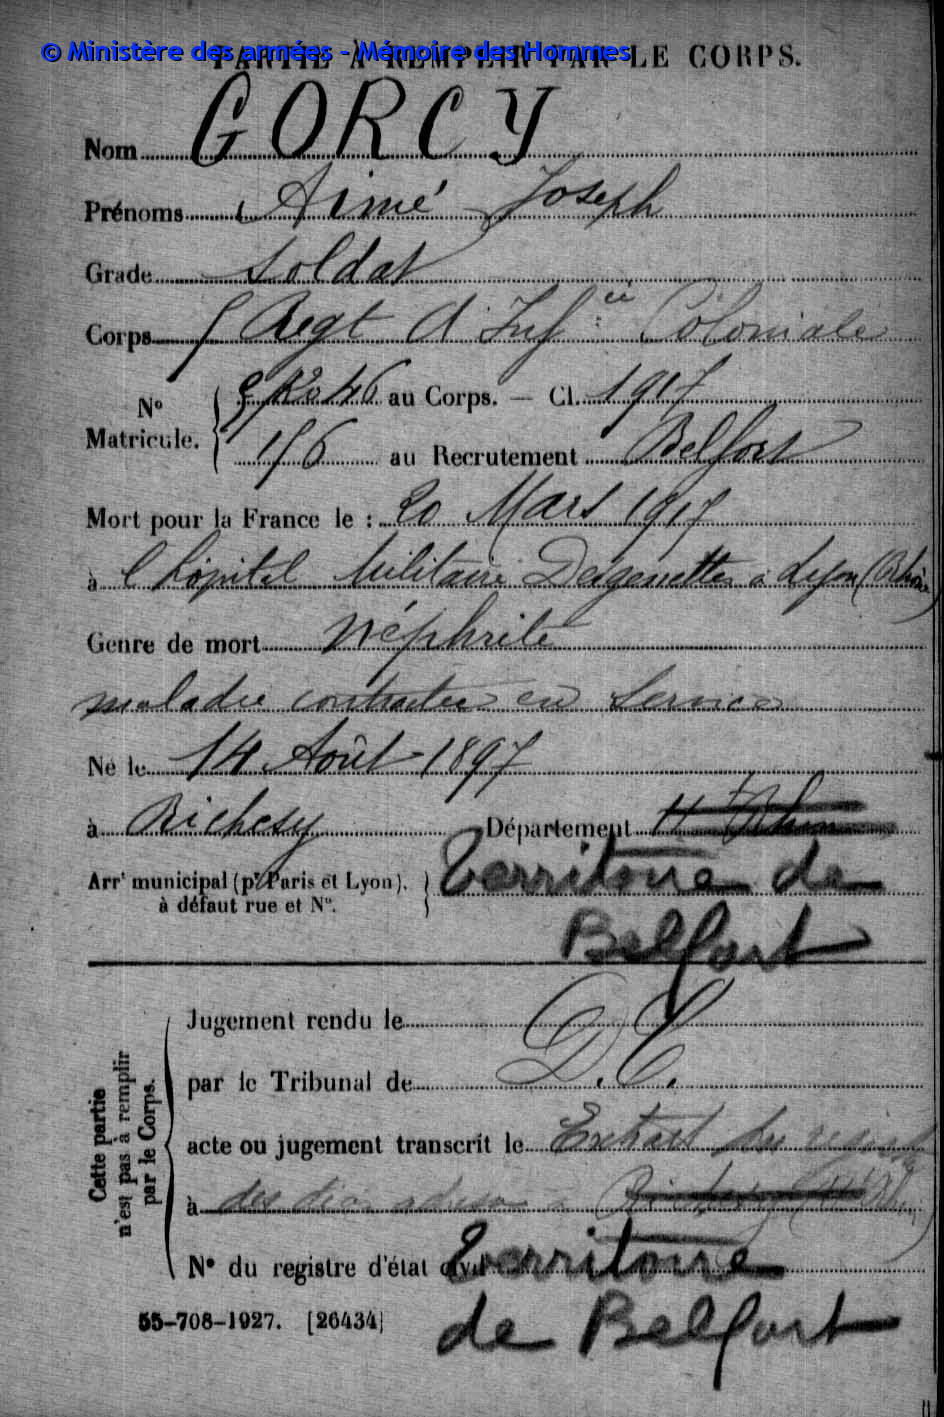 © Ministère des armées - Mémoire des Hommes
PARTIE À REMPLIR PAR LE CORPS.
Nom GORCY
Prénoms Aimé Joseph
Grade Soldat
Corps 5 Regt d'Inf ie Coloniale
N° Matricule. au Corps. — Cl. 1917
156 au Recrutement Belfort
Mort pour la France le : 20 Mars 1917
à l'hôpital Militaire Desgenettes à Lyon (Rhône)
Genre de mort Néphrite
maladie contractée en Service
Né le 14 Août 1897
à Richesy Département Ht Rhin
Arrt municipal (pr Paris et Lyon), Territoire de
à défaut rue et N°. Belfort
Jugement rendu le
par le Tribunal de D.C.
acte ou jugement transcrit le Extrait du
à des
N° du registre d'état civil Territoire
de Belfort
Cette partie n'est pas à remplir par le Corps.
55-708-1927. [26434]